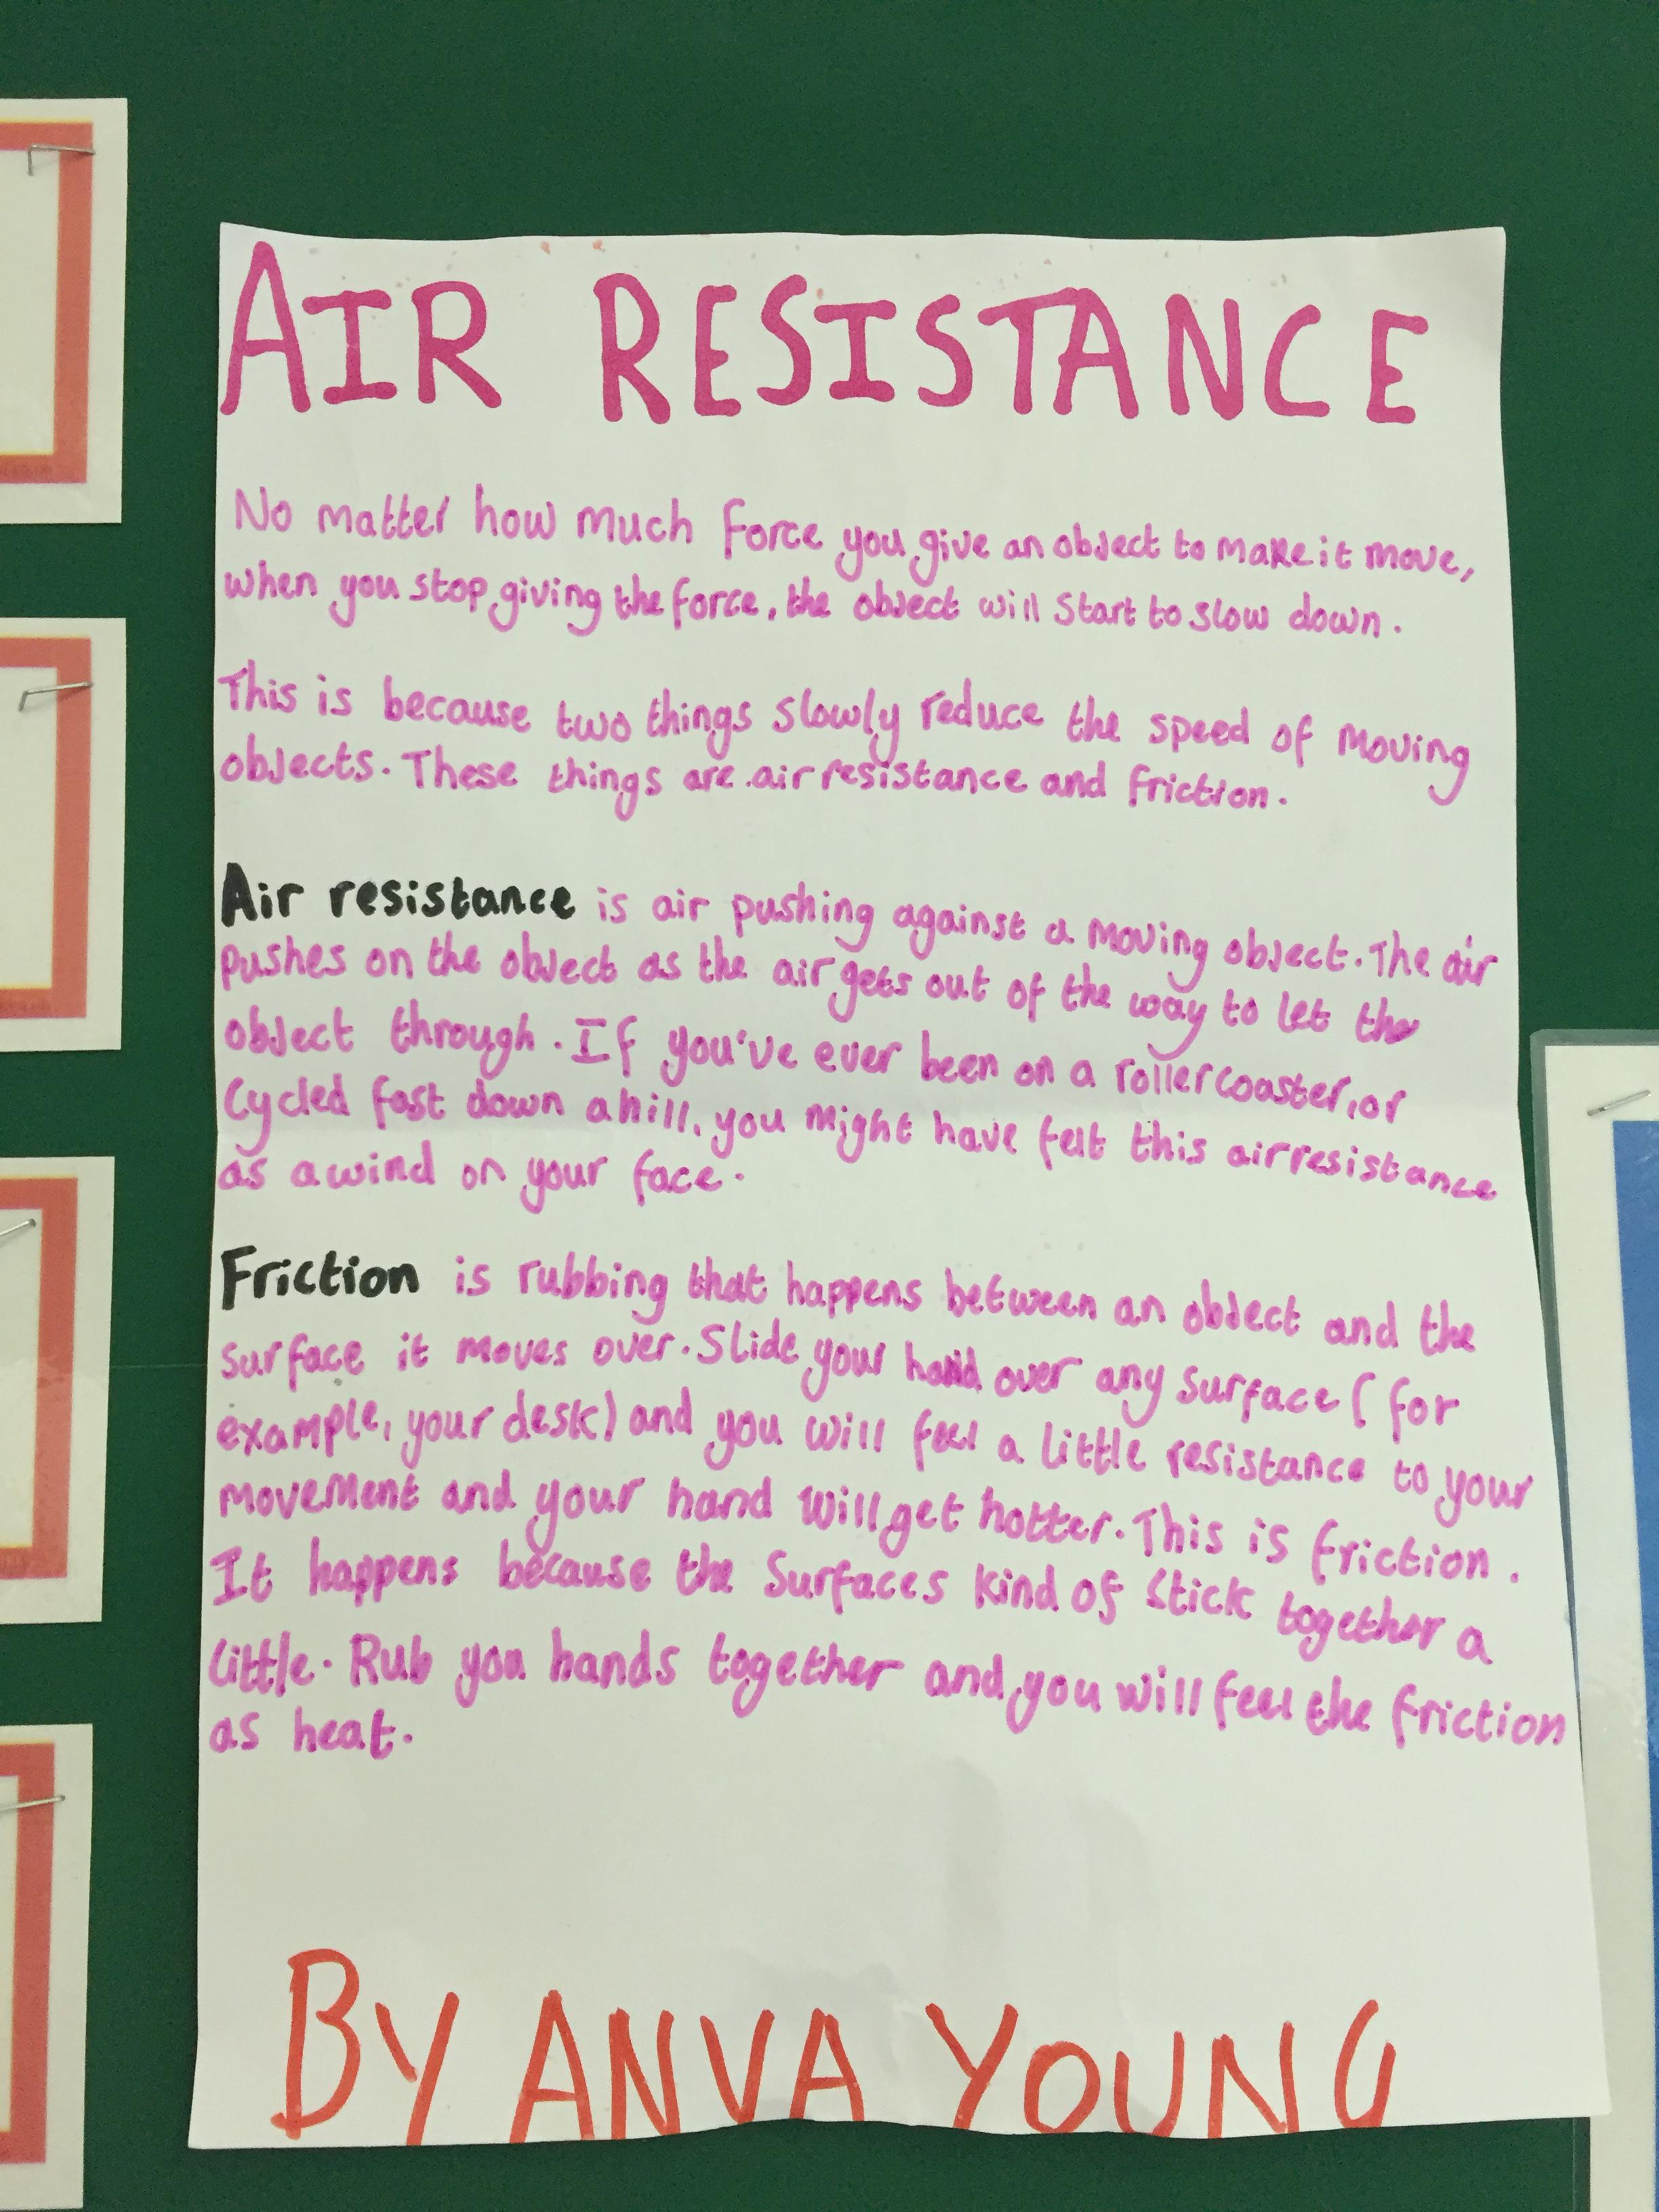 AIR RESISTANCE
No matter how much force you give an object to make it move,
when you stop giving the force, the object will start to slow down.
This is because two things slowly reduce the speed of moving
objects. These things are air resistance and friction.
Air resistance is air pushing against a moving object. The air
pushes on the object as the air gets out of the way to let the
object through. If you've ever been on a rollercoaster, or
cycled fast down a hill, you might have felt this air resistance
as a wind on your face.
Friction is rubbing that happens between an object and the
surface it moves over. Slide your hand over any surface (for
example, your desk) and you will feel a little resistance to your
movement and your hand will get hotter. This is friction.
It happens because the surfaces kind of stick together a
little. Rub you hands together and you will feel the friction
as heat.
BY ANVA YOUNG